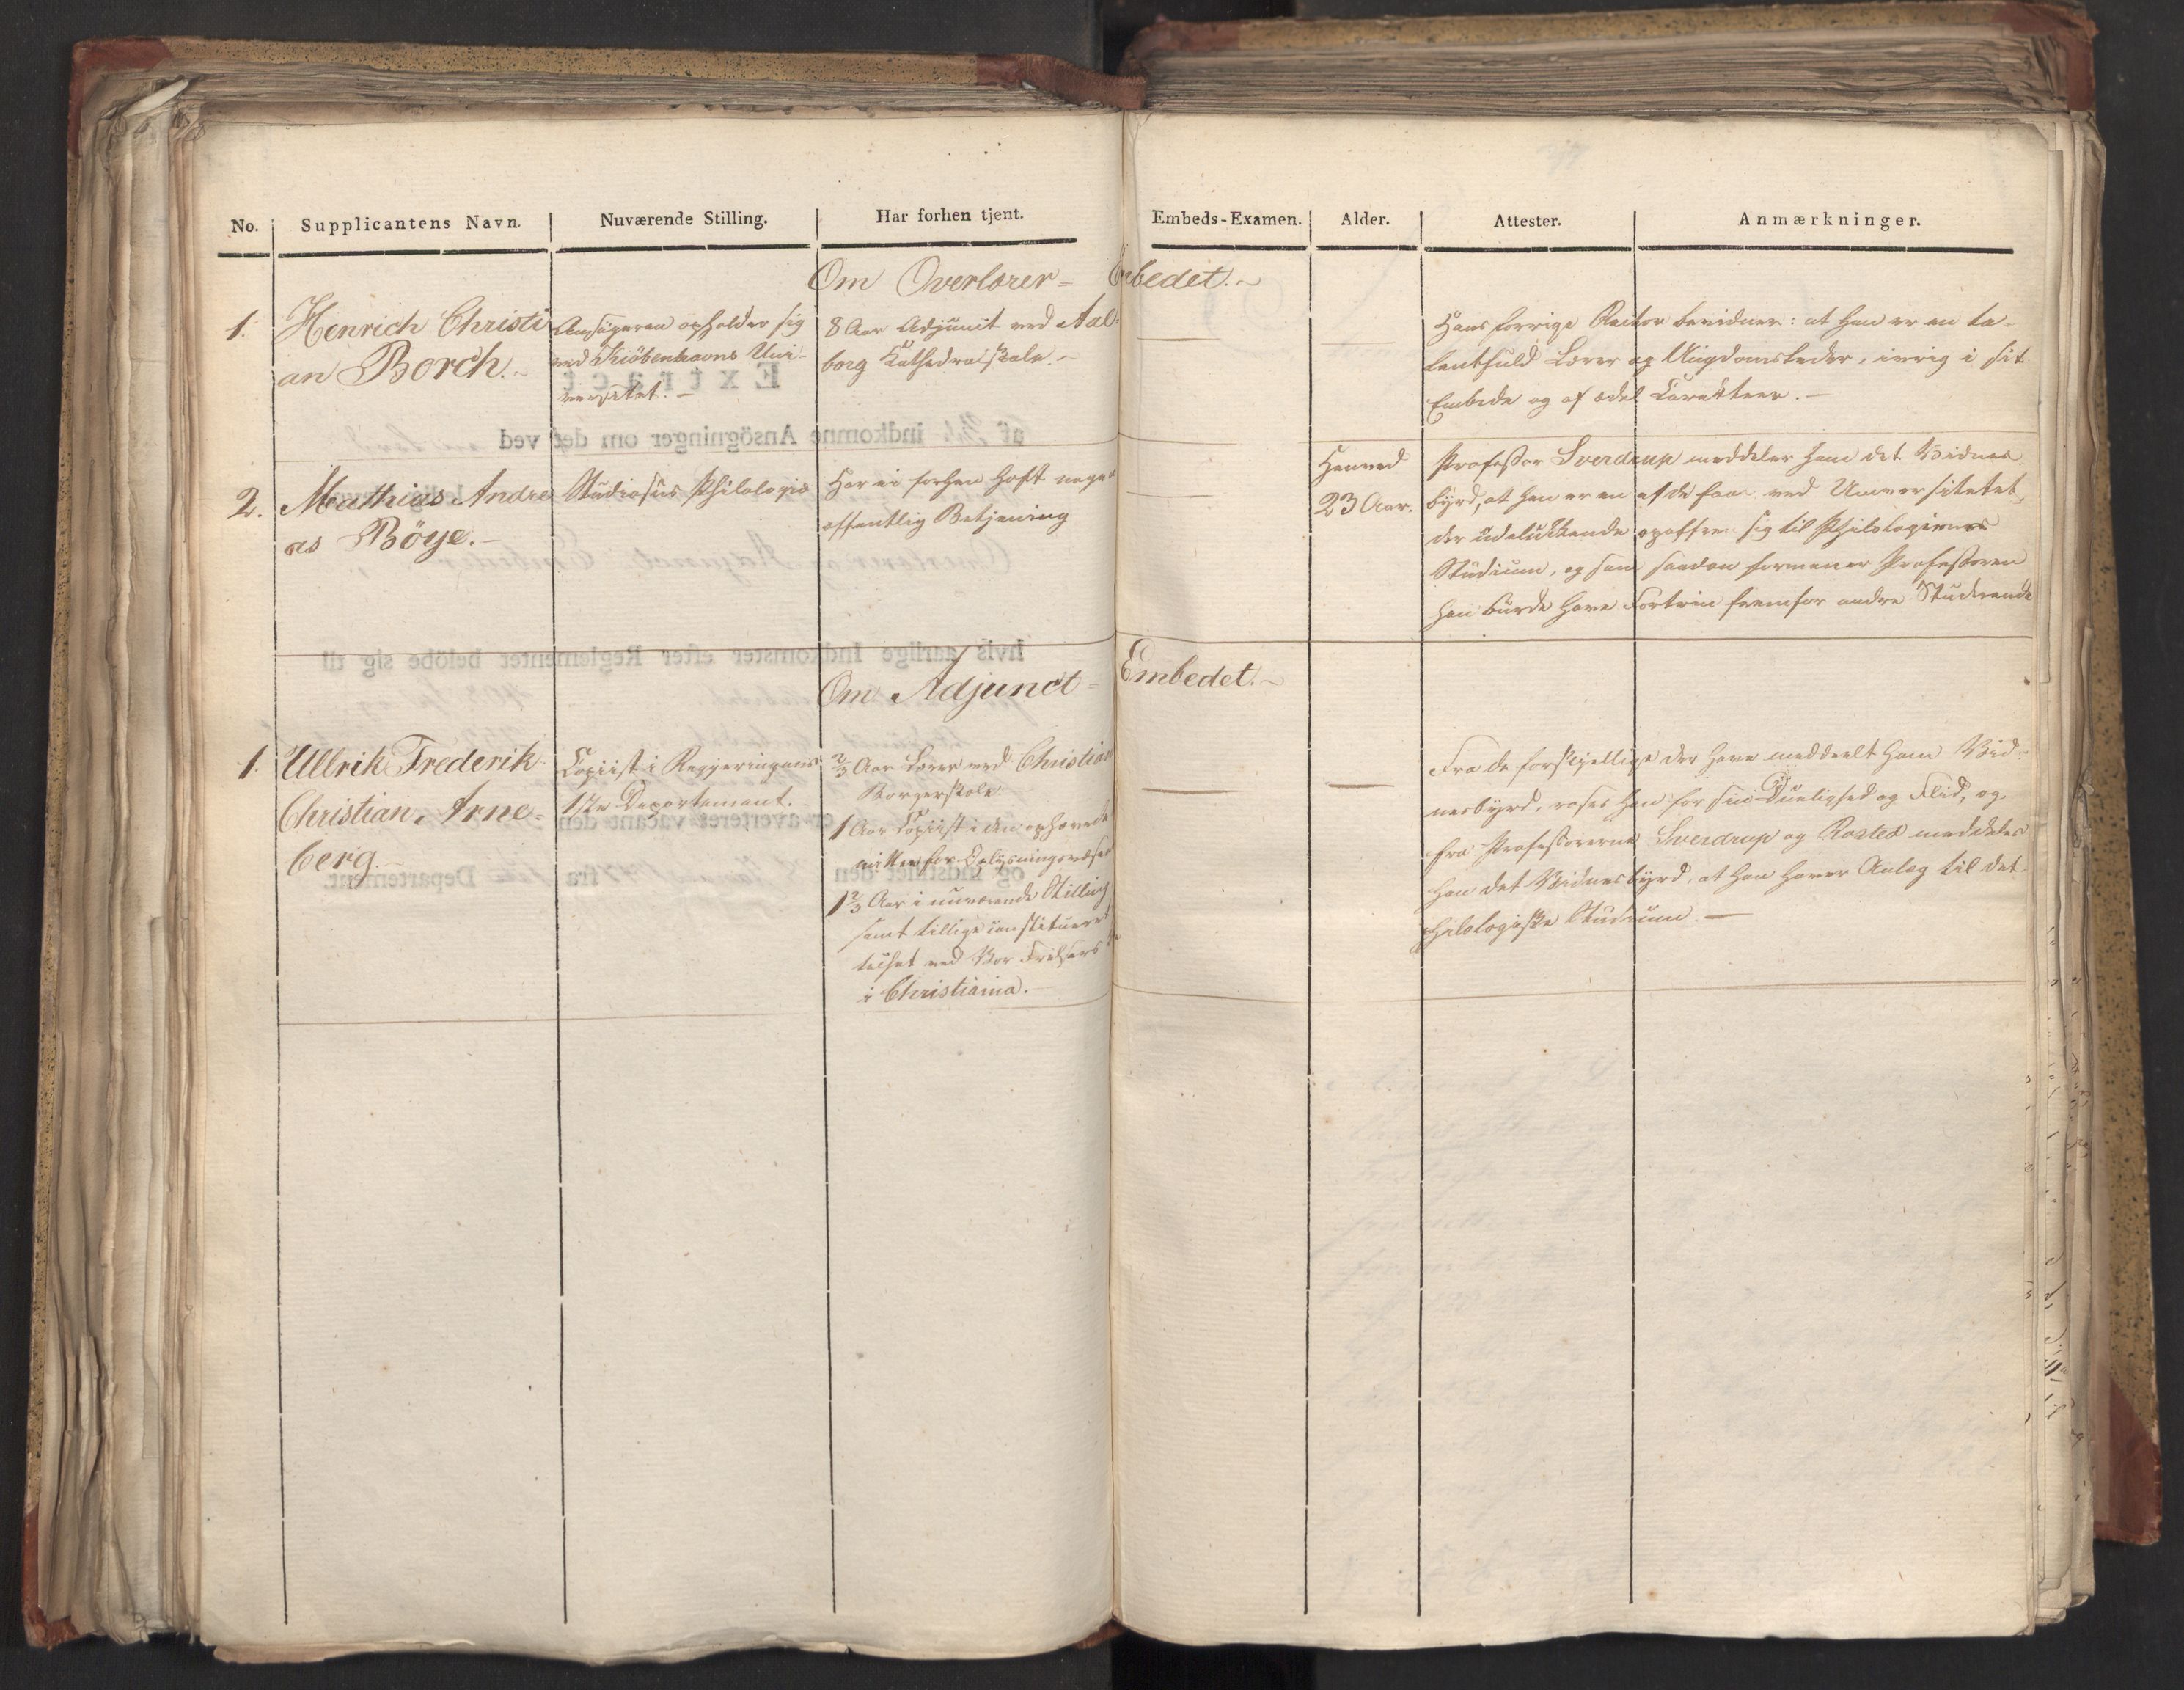 No. Supplicantens Navn. Nuværende Stilling. Har forhen tjent. Embeds-Examen. Alder. Attester. Anmærkninger.
Om Overlærer-Embedet.
1. Henrich Christi
an Borch.
Ansøgeren opholder sig
ved Kiöbenhavns Uni-
versitet.
8 Aar Adjunct ved Aal-
borg Kathedralskole.
Hans forrige Rector bevidner: at han er en ta-
lentfuld Lærer og Ungdomsleder, ivrig i sit
Embede og af ædel Caracteer.
2. Mathias Andre
as Böye.
Studiosus Philologiæ
Har ei forhen haft nogen
offentlig Betjening
Henved
23 Aar.
Professor Sverdrup meddeler ham det Vidnes-
byrd, at han er en af de faae ved Universitetet,
der udelukkende opoffre sig til Philologiens
Studium, og som saadan formener Professoren
han burde have Fortrin fremfor andre Studerende
Om Adjunct-Embedet.
1. Ullrik Frederik
Christian Arne-
berg.
Copiist i Regjeringens
1ste Departement.
2/3 Aar Lærer ved Christian
Borgerskole
1 Aar Copiist i den ophævede
for Oplysningsvæsen
1 2/3 Aar i nuværende Stilling
samt tillige constitueret
ved Vor Frelsers
i Christiania.
Fra de forskjellige der have meddeelt ham Vid-
nesbyrd, roses han for sin Duelighed og Flid, og
fra Professorerne Sverdrup og Rosted meddeles
ham det Vidnesbyrd, at han haver Anlæg til det
philologiske Studium.